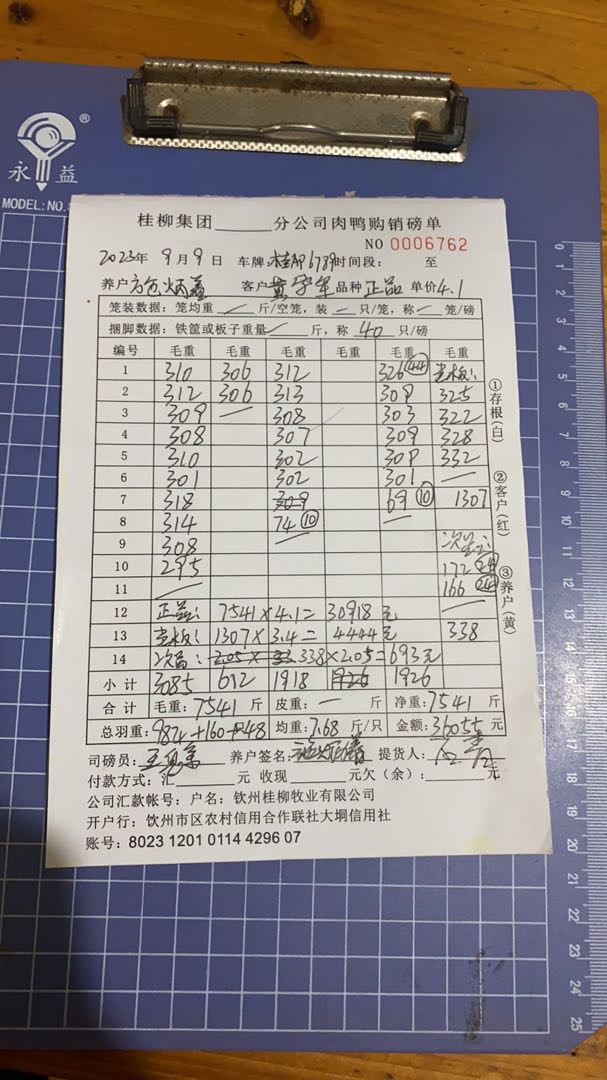 永益®
MODEL: NO.
桂柳集团______分公司肉鸭购销磅单
NO 0006762
2023年 9月9日 车牌: 桂 6739 时间段: 至
养户 客户 黄 品种 正品 单价 4.1
笼装数据: 笼均重 / 斤/空笼, 装 — 只/笼, 称 — 笼/磅
捆脚数据: 铁筐或板子重量 / 斤, 称 40 只/磅
编号 毛重 毛重 毛重 毛重 毛重 毛重
1 310 306 312 326 (44)
2 312 306 313 308 325
3 309 — 308 303 322
4 308 307 309 328
5 310 302 308 332
6 301 302 301 —
7 318 309 69 (10) 1307
8 314 74 (10) —
9 308 — 次
10 295 172 (24)
11 — 166 (24)
12 正品: 7541×4.1= 30918元 —
13 1307×3.4= 4444元 338
14 次 2.05× 338×2.05=693元
小计 3085 612 1918 1926 1926
合计 毛重: 7541 斤 皮重: — 斤 净重: 7541 斤
总羽重: 982+160+48 均重: 7.68 斤/只 金额: 36055 元
司磅员: 养户签名: 提货人:
付款方式: 汇______元 收现______元欠(余): ______元
公司汇款帐号: 户名: 钦州桂柳牧业有限公司
开户行: 钦州市区农村信用合作联社大垌信用社
账号: 8023 1201 0114 4296 07
①存根(白)
②客户(红)
③养户(黄)
0
1
2
3
4
5
6
7
8
9
10
11
12
13
14
15
16
17
18
19
20
21
22
23
24
25